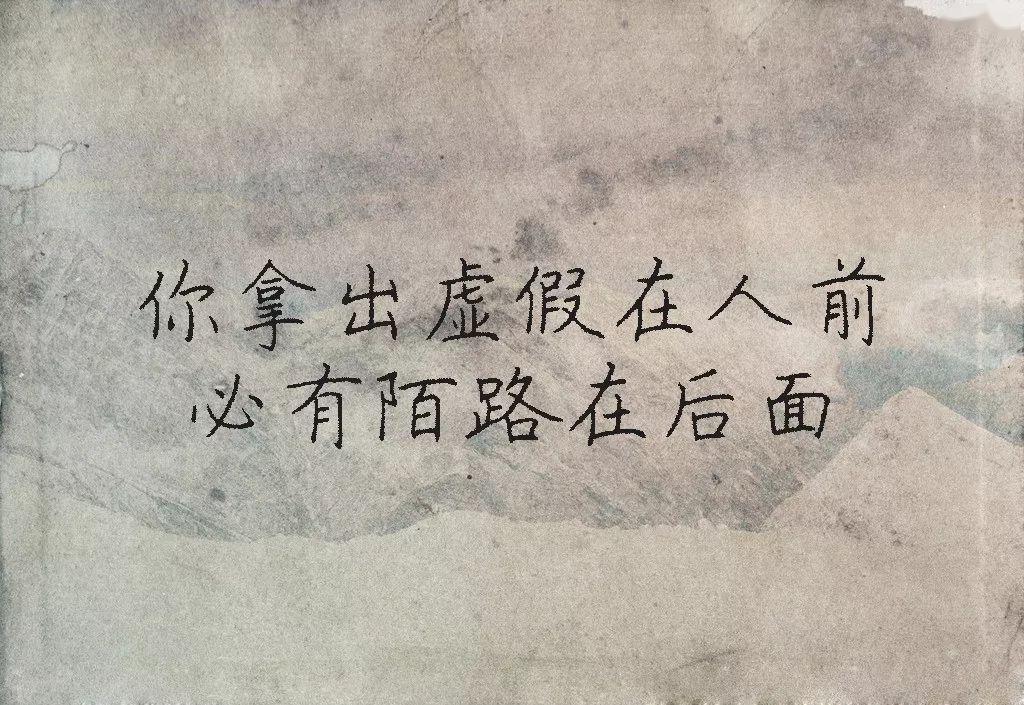 你拿出虚假在人前
必有陌路在后面